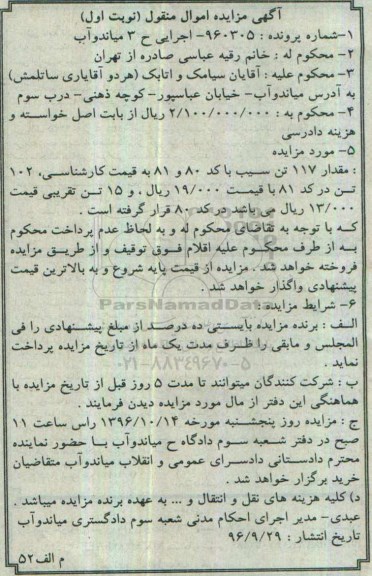 آگهی مزایده اموال منقول (نوبت اول)
۱-شماره پرونده : ۹۶۰۳۰۵- اجرایی ح ۳ میاندوآب
۲- محکوم له : خانم رقیه عباسی صادره از تهران
۳- محکوم علیه : آقایان سیامک و اتابک (هردو آقایاری ساتلمش)
به آدرس میاندوآب- خیابان عباسپور-کوچه ذهنی- درب سوم
۴- محکوم به : ۲/۱۰۰/۰۰۰/۰۰۰ ریال از بابت اصل خواسته و
هزینه دادرسی
۵- مورد مزایده
: مقدار ۱۱۷ تن سیب با کد ۸۰ و ۸۱ به قیمت کارشناسی، ۱۰۲
تن در کد ۸۱ با قیمت ۱۹/۰۰۰ ریال ، و ۱۵ تن تقریبی قیمت
۱۳/۰۰۰ ریال می باشد در کد ۸۰ قرار گرفته است .
که با توجه به تقاضای محکوم له و به لحاظ عدم پرداخت محکوم
به از طرف محکوم علیه اقلام فوق توقیف و از طریق مزایده
فروخته خواهد شد . مزایده از قیمت پایه شروع و به بالاترین قیمت
پیشنهادی واگذار خواهد شد .
۶- شرایط مزایده :
الف : برنده مزایده بایستی ده درصد از مبلغ پیشنهادی را فی
المجلس و مابقی را ظرف مدت یک ماه از تاریخ مزایده پرداخت
نماید .
ب : شرکت کنندگان میتوانند تا مدت ۵ روز قبل از تاریخ مزایده با
هماهنگی این دفتر از مال مورد مزایده دیدن فرمایند .
ج : مزایده روز پنجشنبه مورخه ۱۳۹۶/۱۰/۱۴ راس ساعت ۱۱
صبح در دفتر شعبه سوم دادگاه ح میاندوآب با حضور نماینده
محترم دادستانی دادسرای عمومی و انقلاب میاندوآب متقاضیان
خرید برگزار خواهد شد .
د) کلیه هزینه های نقل و انتقال و ... به عهده برنده مزایده میباشد .
عبدی- مدیر اجرای احکام مدنی شعبه سوم دادگستری میاندوآب
تاریخ انتشار : ۹۶/۹/۲۹
م الف۵۲
ParsNamadData
۰۲۱-۸۸۳۴۹۶۷۰-۵